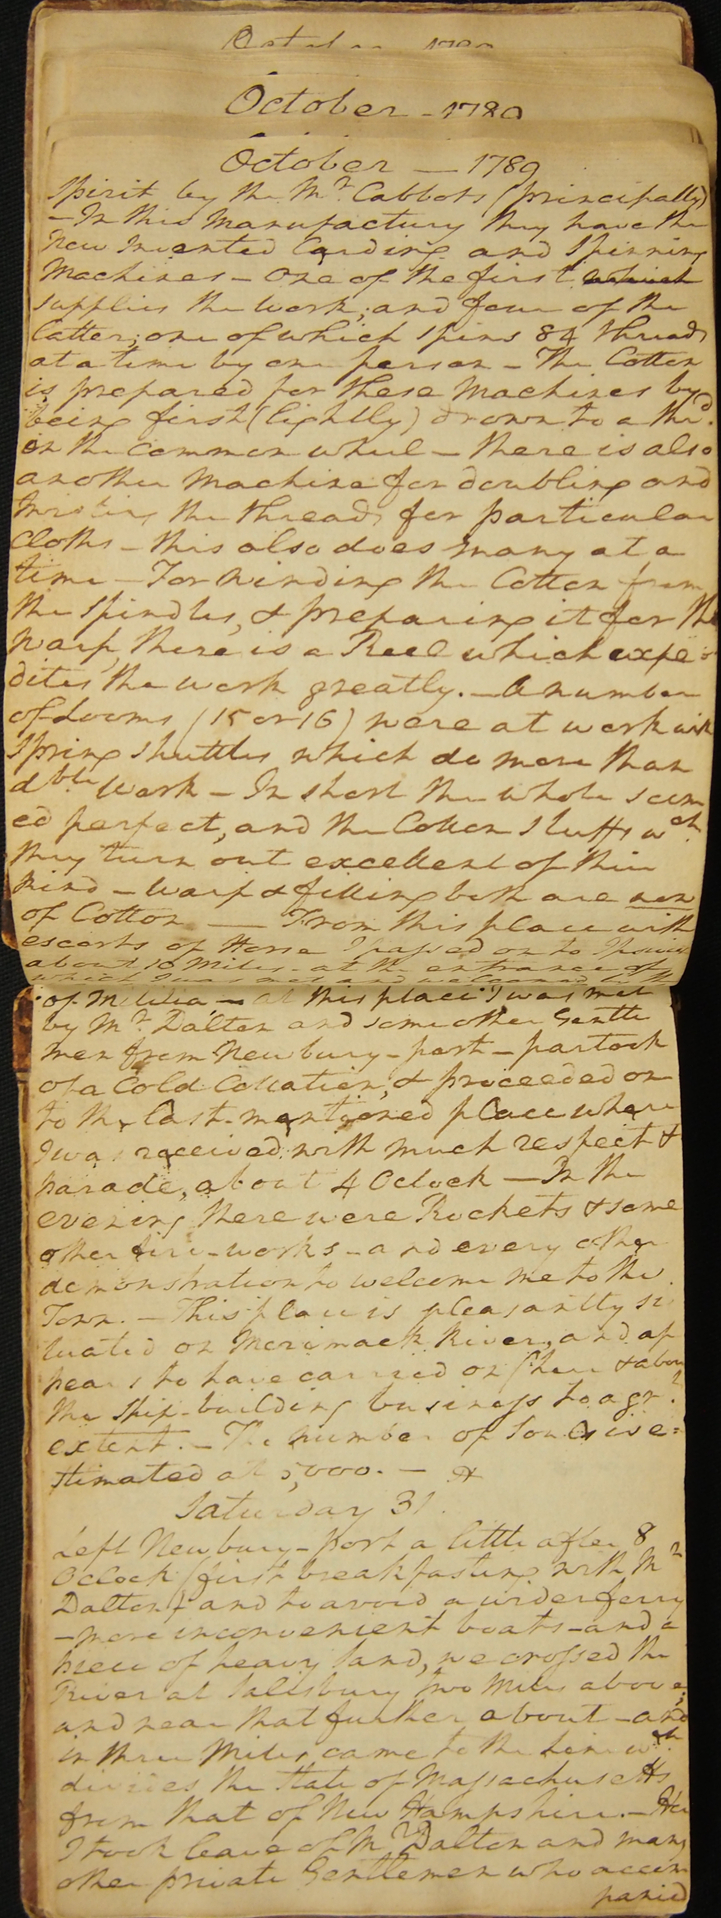 October - 1789
October — 1789
Spirit by the Mr. Cabbots (principally)
- In this Manufactury they have the
New Invented Carding and Spinning
Machines - one of the first
supplies the work; and four of the
latter; one of which spins 84 threads
at a time by one person - The Cotton
is prepared for these Machines by
being first (lightly) drawn to a thrd.
on the common wheel - there is also
another Machine for doubling and
twisting the threads for particular
cloths - this also does many at a
time - For winding the Cotton from
the Spindles, & preparing it for the
Warp, there is a Reel which expe-
dites the work greatly. - A number
of Looms (15 or 16) were at work with
Spring Shuttles which do more than
dble work - In short the whole seem
ed perfect, and the Cotton Stuffs wch.
they turn out excellent of their
kind - warp & filling both are now
of Cotton — From this place with
escorts of Horse I passed on to Ipswich
about 10 Miles - at the entrance of
which I was met and welcomed by the
of Militia, - at this place I was met
by Mr. Dalton and some other Gentle
men from Newbury-port - partook
of a Cold Collation, & proceeded on
to the last mentioned place where
I was received with much respect &
parade, about 4 Oclock — In the
evening there were Rockets & some
other fire-works - and every other
demonstration to welcome me to the
Town. - This place is pleasantly si
tuated on Merimack River, and ap
pears to have carried on (here & about)
the Ship-building business to a grt.
extent. - The number of Souls is e=
stimated at 5,000. -
Saturday 31.
Left Newbury-port a little after 8
Oclock (first breakfasting with Mr.
Dalton) and to avoid a wider ferry
- more inconvenient boats - and a
piece of heavy Sand, we crossed the
River at Salisbury two Miles above;
and near that further about - and
in three Miles came to the line wch
divides the State of Massachusetts
from that of New Hampshire. - Here
I took leave of Mr. Dalton and many
other private Gentlemen who accom
panied